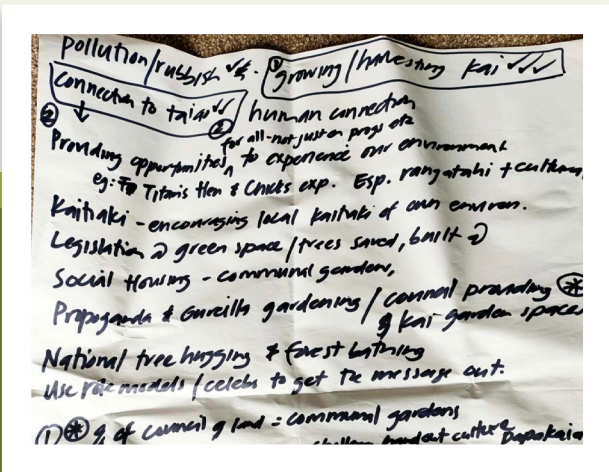 Pollution/rubbish ✓✓. ① growing/harvesting kai ✓✓✓
connection to taiao ✓✓
② ↓ ② human connection
for all - not just on progs etc
Providing opportunities ^ to experience our environment
eg: Titans Hen & Chicks exp. Esp. rangatahi + cultures
Kaitiaki - encouraging local kaitiaki of own environ.
Legislation green space/trees saved, built
Social Housing - communal gardens,
Propoganda & Gureilla gardening / council providing ⊛
% kai garden spaces
National tree hugging & forest bathing
Use role models/celebs to get the message out.
① ⊛ % of council g land = communal gardens
handout culture Papakaia